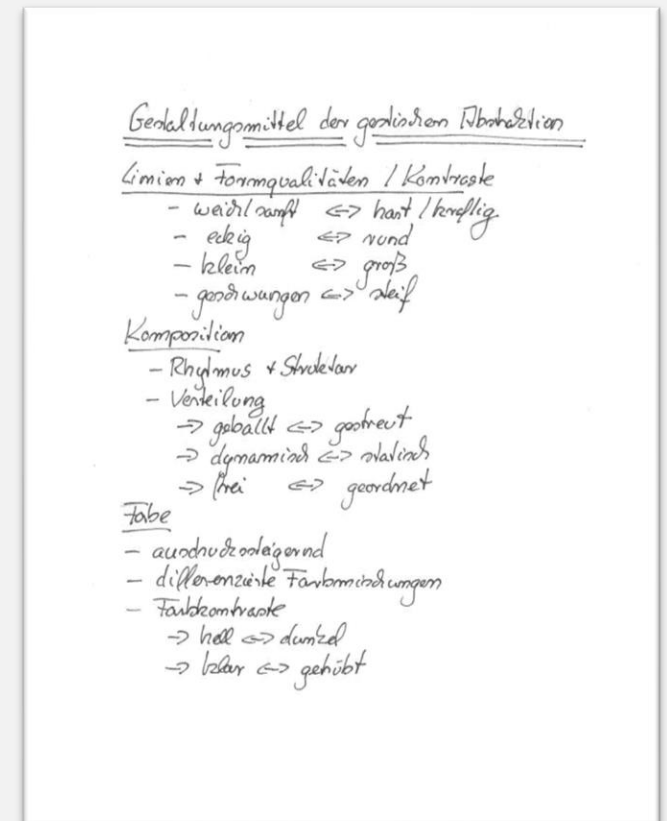 Gestaltungsmittel der gestischen Abstraktion
Linien + Formqualitäten / Kontraste
- weich/sanft <-> hart/kräftig
- eckig <-> rund
- klein <-> groß
- geschwungen <-> steif
Komposition
- Rhytmus + Struktur
- Verteilung
-> geballt <-> gestreut
-> dynamisch <-> statisch
-> frei <-> geordnet
Fabe
- ausdrucksteigernd
- differenzierte Farbmischungen
- Farbkontraste
-> hell <-> dunkel
-> klar <-> getrübt